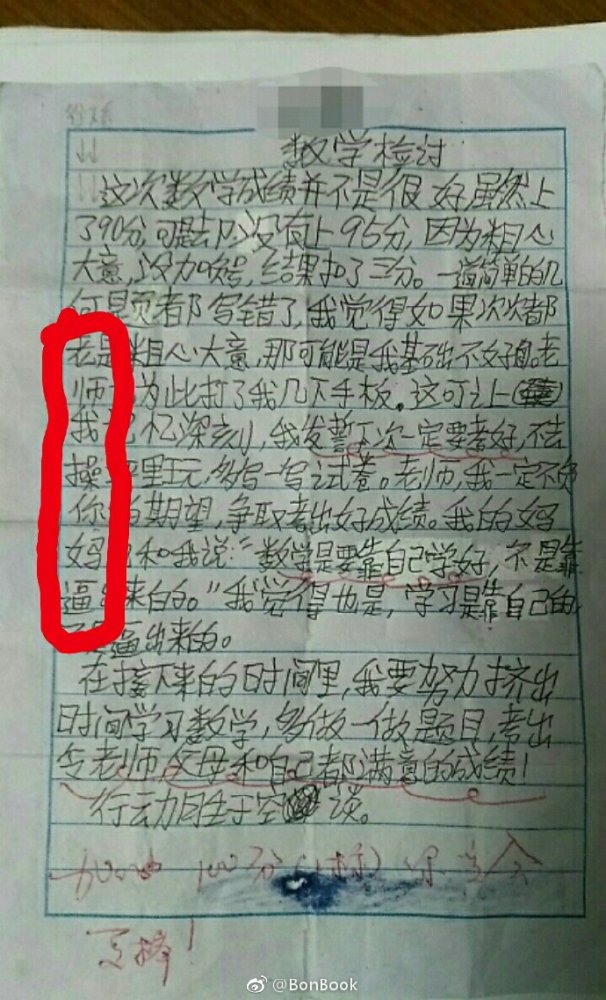 数学检讨
这次数学成绩并不是很好，虽然上
了90分，可是却没有上95分，因为粗心
大意，没加心号，结果扣了三分。一道简单的几
何题都写错了，我觉得如果次次都
老是粗心大意，那可能是我基础不好。老
师为此打了我几下手板。这可让
我记忆深刻，我发誓下次一定要考好，不去
操场里玩，多写一写试卷。老师，我一定不负
你的期望，争取考出好成绩。我的妈
妈也和我说：“数学是要靠自己学好，不是靠
逼出来的。”我觉得也是，学习是靠自己的，
不是逼出来的。
在接下来的日时间里，我要努力挤出
时间学习数学，多做一做题目，考出
令老师，父母和自己都满意的成绩！
行动胜于空谈。
100分
更棒！
@BonBook